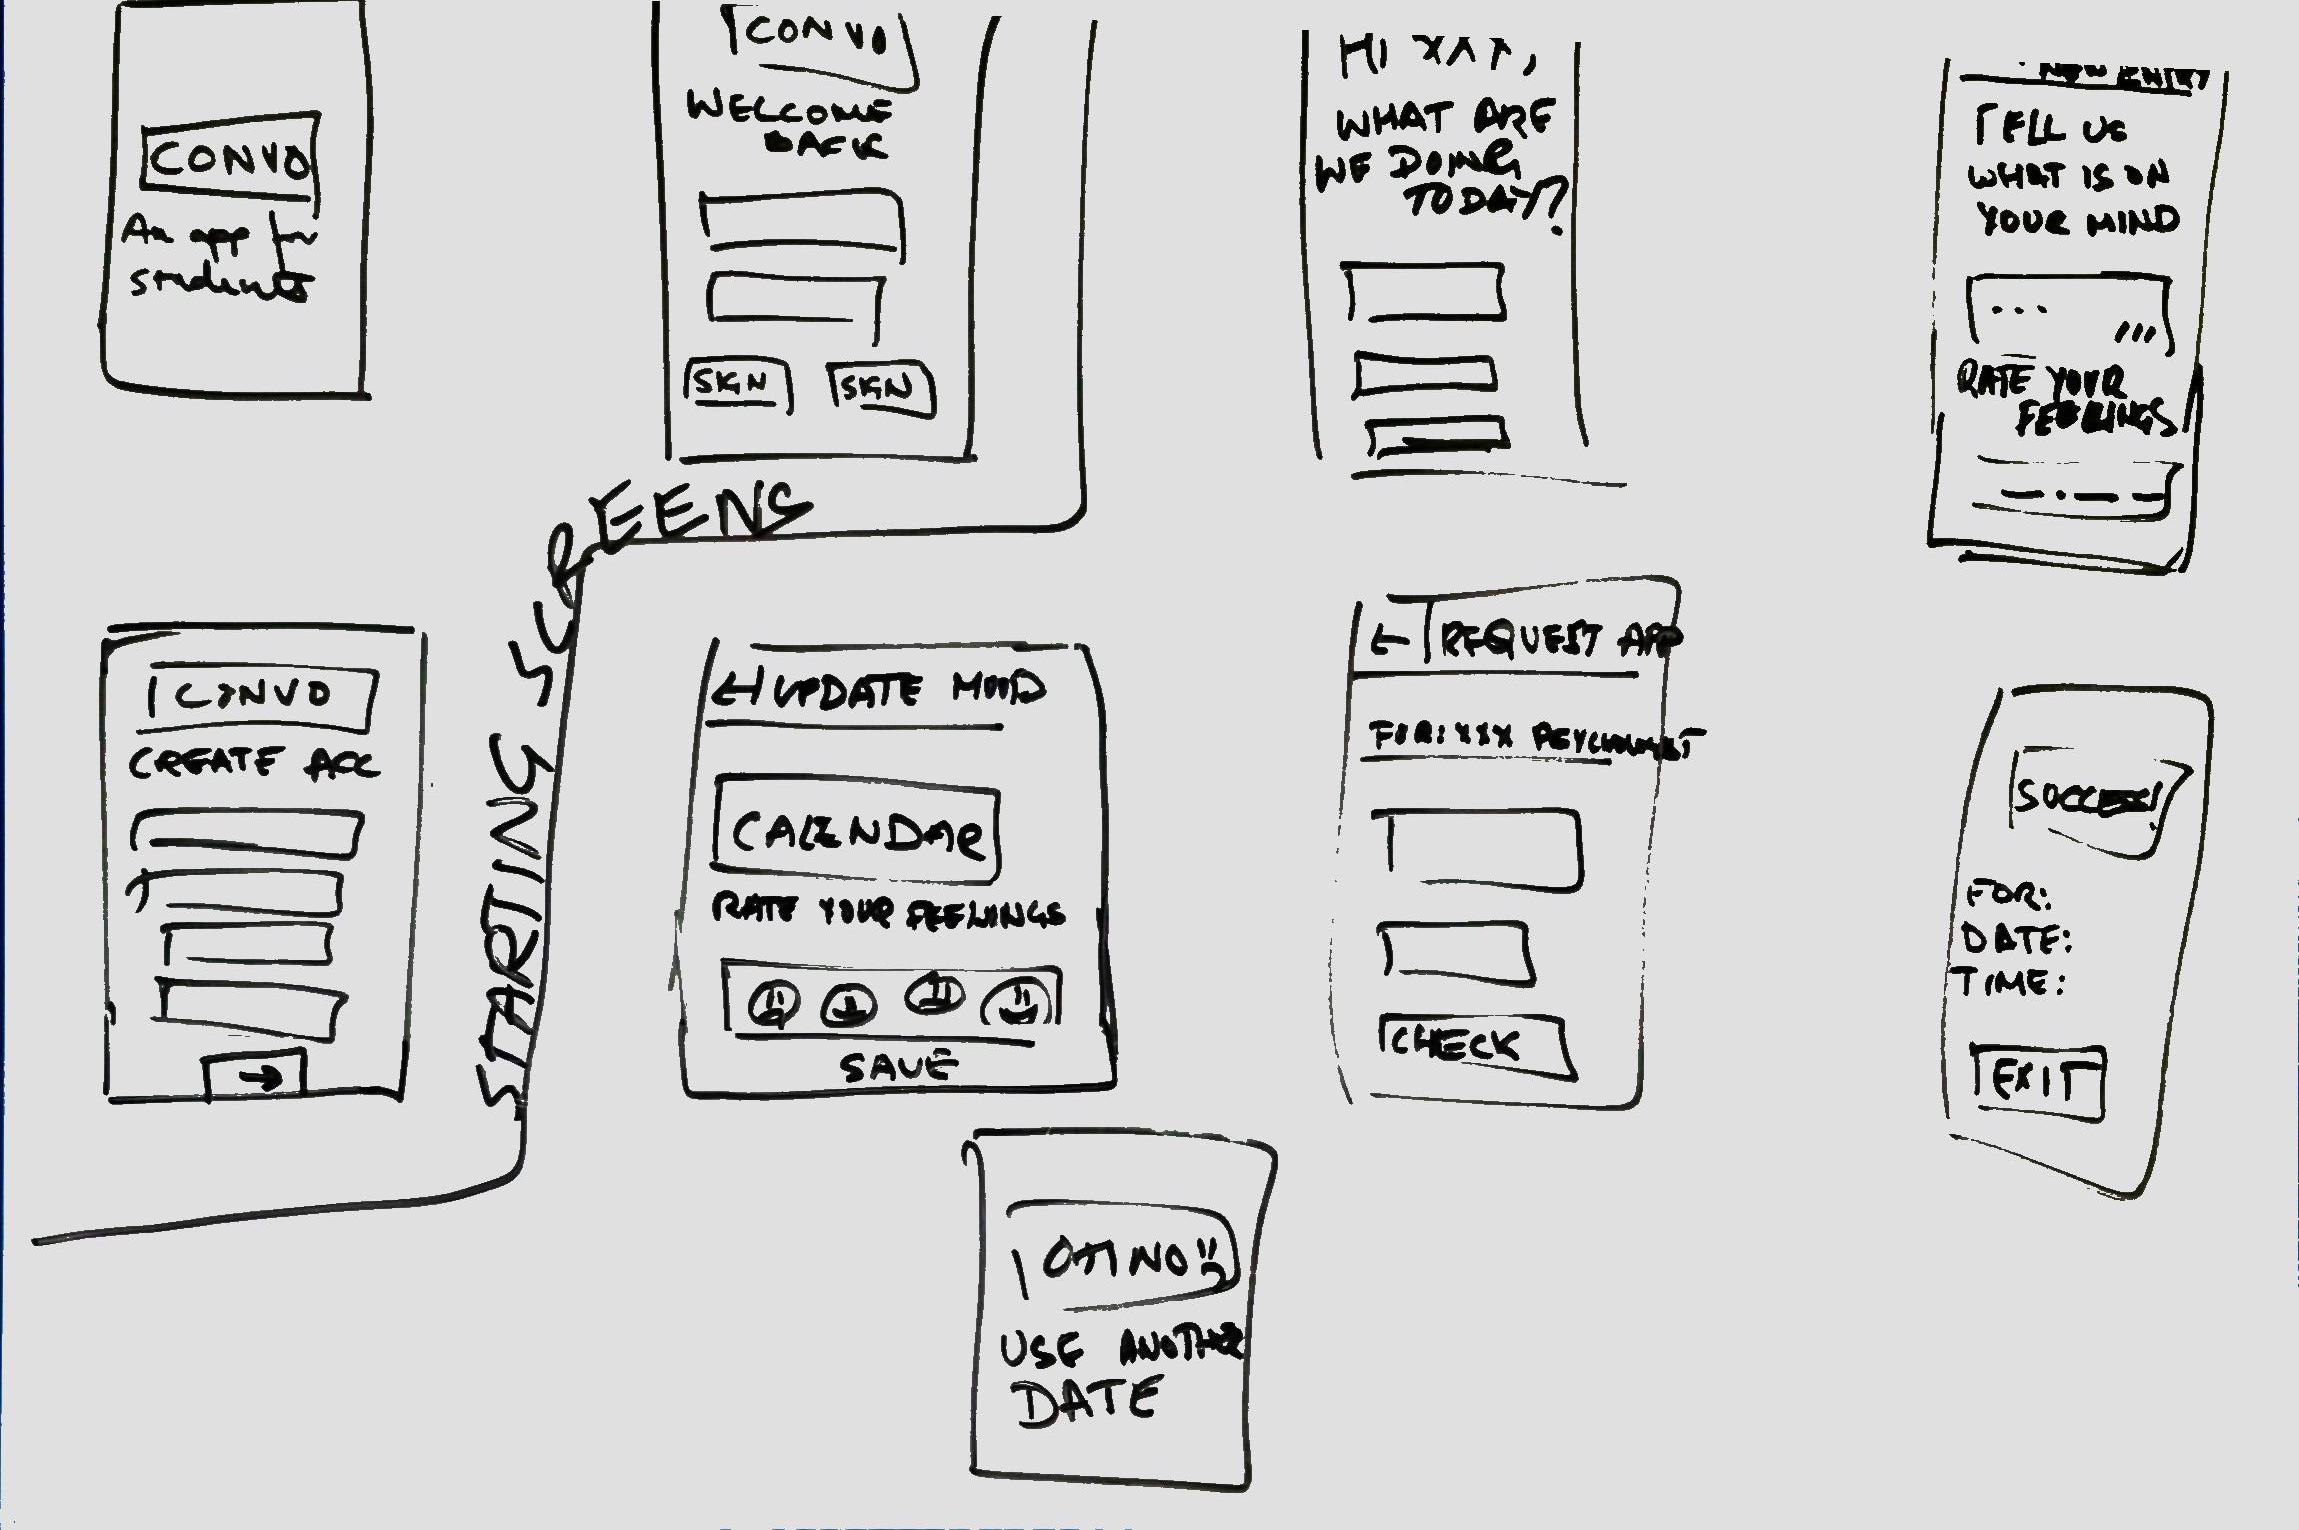 CONVO
An app for
students
CONVO
WELCOME
BACK
SIGN
SIGN
HI
WHAT ARE
WE DOING
TODAY?
NEW ENTRY
TELL US
WHAT IS ON
YOUR MIND
...
RATE YOUR
FEELINGS
STARTING SCREENS
CONVO
CREATE ACC
→
← UPDATE MOOD
CALENDAR
RATE YOUR FEELINGS
SAVE
← REQUEST APP
FOR: XXX PSYCHOLOGIST
CHECK
SUCCESS!
FOR:
DATE:
TIME:
EXIT
OH NO
USE ANOTHER
DATE